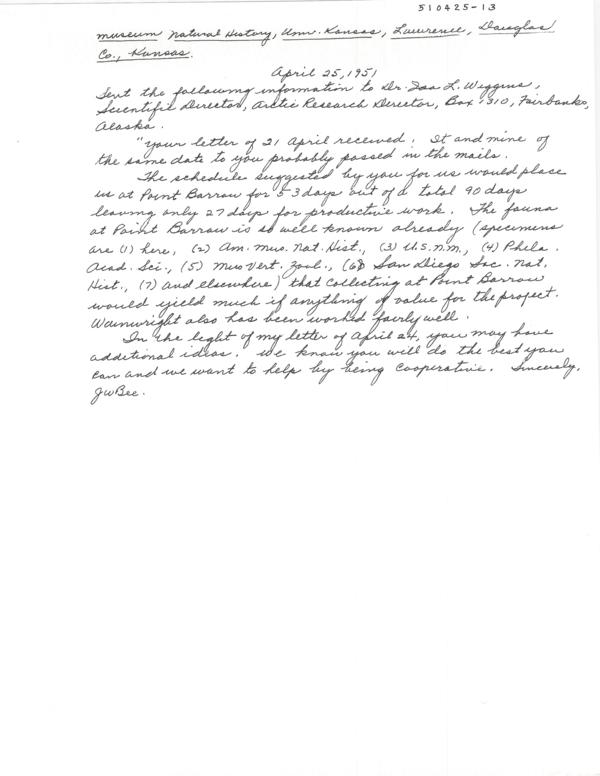 510425-13
Museum Natural History, Univ. Kansas, Lawrence, Douglas
Co., Kansas.
April 25, 1951
Sent the following information to Dr. Ira L. Wiggins,
Scientific Director, Arctic Research Director, Box 310, Fairbanks,
Alaska.
"Your letter of 21 April received. It and mine of
the same date to you probably passed in the mails.
The schedule suggested by you for us would place
us at Point Barrow for 53 days out of a total 90 days
leaving only 27 days for productive work. The fauna
at Point Barrow is so well known already (specimens
are (1) here, (2) Am. Mus. Nat. Hist., (3) U.S.N.M., (4) Phila.
Acad. Sci., (5) Mus Vert. Zool., (6) San Diego Soc. Nat.
Hist., (7) and elsewhere) that collecting at Point Barrow
would yield much if anything of value for the project.
Wainwright also has been worked fairly well.
In the light of my letter of April 24, you may have
additional ideas. We know you will do the best you
can and we want to help by being cooperative. Sincerely,
JWBee.